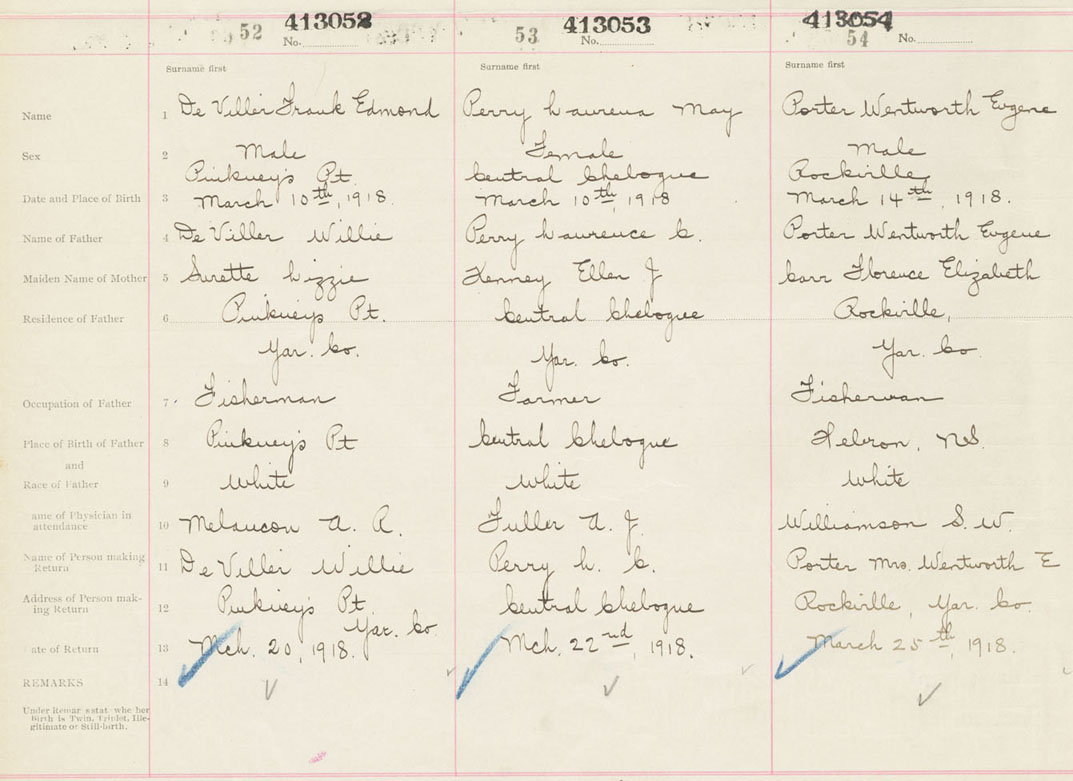 52 413052 No. 53 413053 No. 413054 54 No.
Surname first Surname first Surname first
Name 1 De Viller Frank Edmond Perry Laurena May Porter Wentworth Eugene
Sex 2 Male Female Male
Pinkney's Pt. Central Chebogue Rockville,
Date and Place of Birth 3 March 10th, 1918. March 10th, 1918 March 14th, 1918.
Name of Father 4 De Viller Willie Perry Laurence C. Porter Wentworth Eugene
Maiden Name of Mother 5 Surette Lizzie Kenney Ellen J Carr Florence Elizabeth
Residence of Father 6 Pinkney's Pt. Central Chebogue Rockville,
Yar. Co. Yar. Co. Yar. Co.
Occupation of Father 7 Fisherman Farmer Fisherman
Place of Birth of Father 8 Pinkney's Pt Central Chebogue Hebron, N.S.
and
Race of Father 9 White White White
ame of Physician in
attendance 10 Melancon A. R. Fuller A. J. Williamson S. W.
Name of Person making
Return 11 De Viller Willie Perry L. C. Porter Mrs. Wentworth E
Address of Person mak-
ing Return 12 Pinkney's Pt. Central Chebogue Rockville, Yar. Co.
Yar. Co.
ate of Return 13 Mch. 20, 1918. Mch. 22nd, 1918. March 25th, 1918.
REMARKS 14
Under Remar s stat whe her
Birth is Twin, Triplet, Ille-
gitimate or Still-birth.